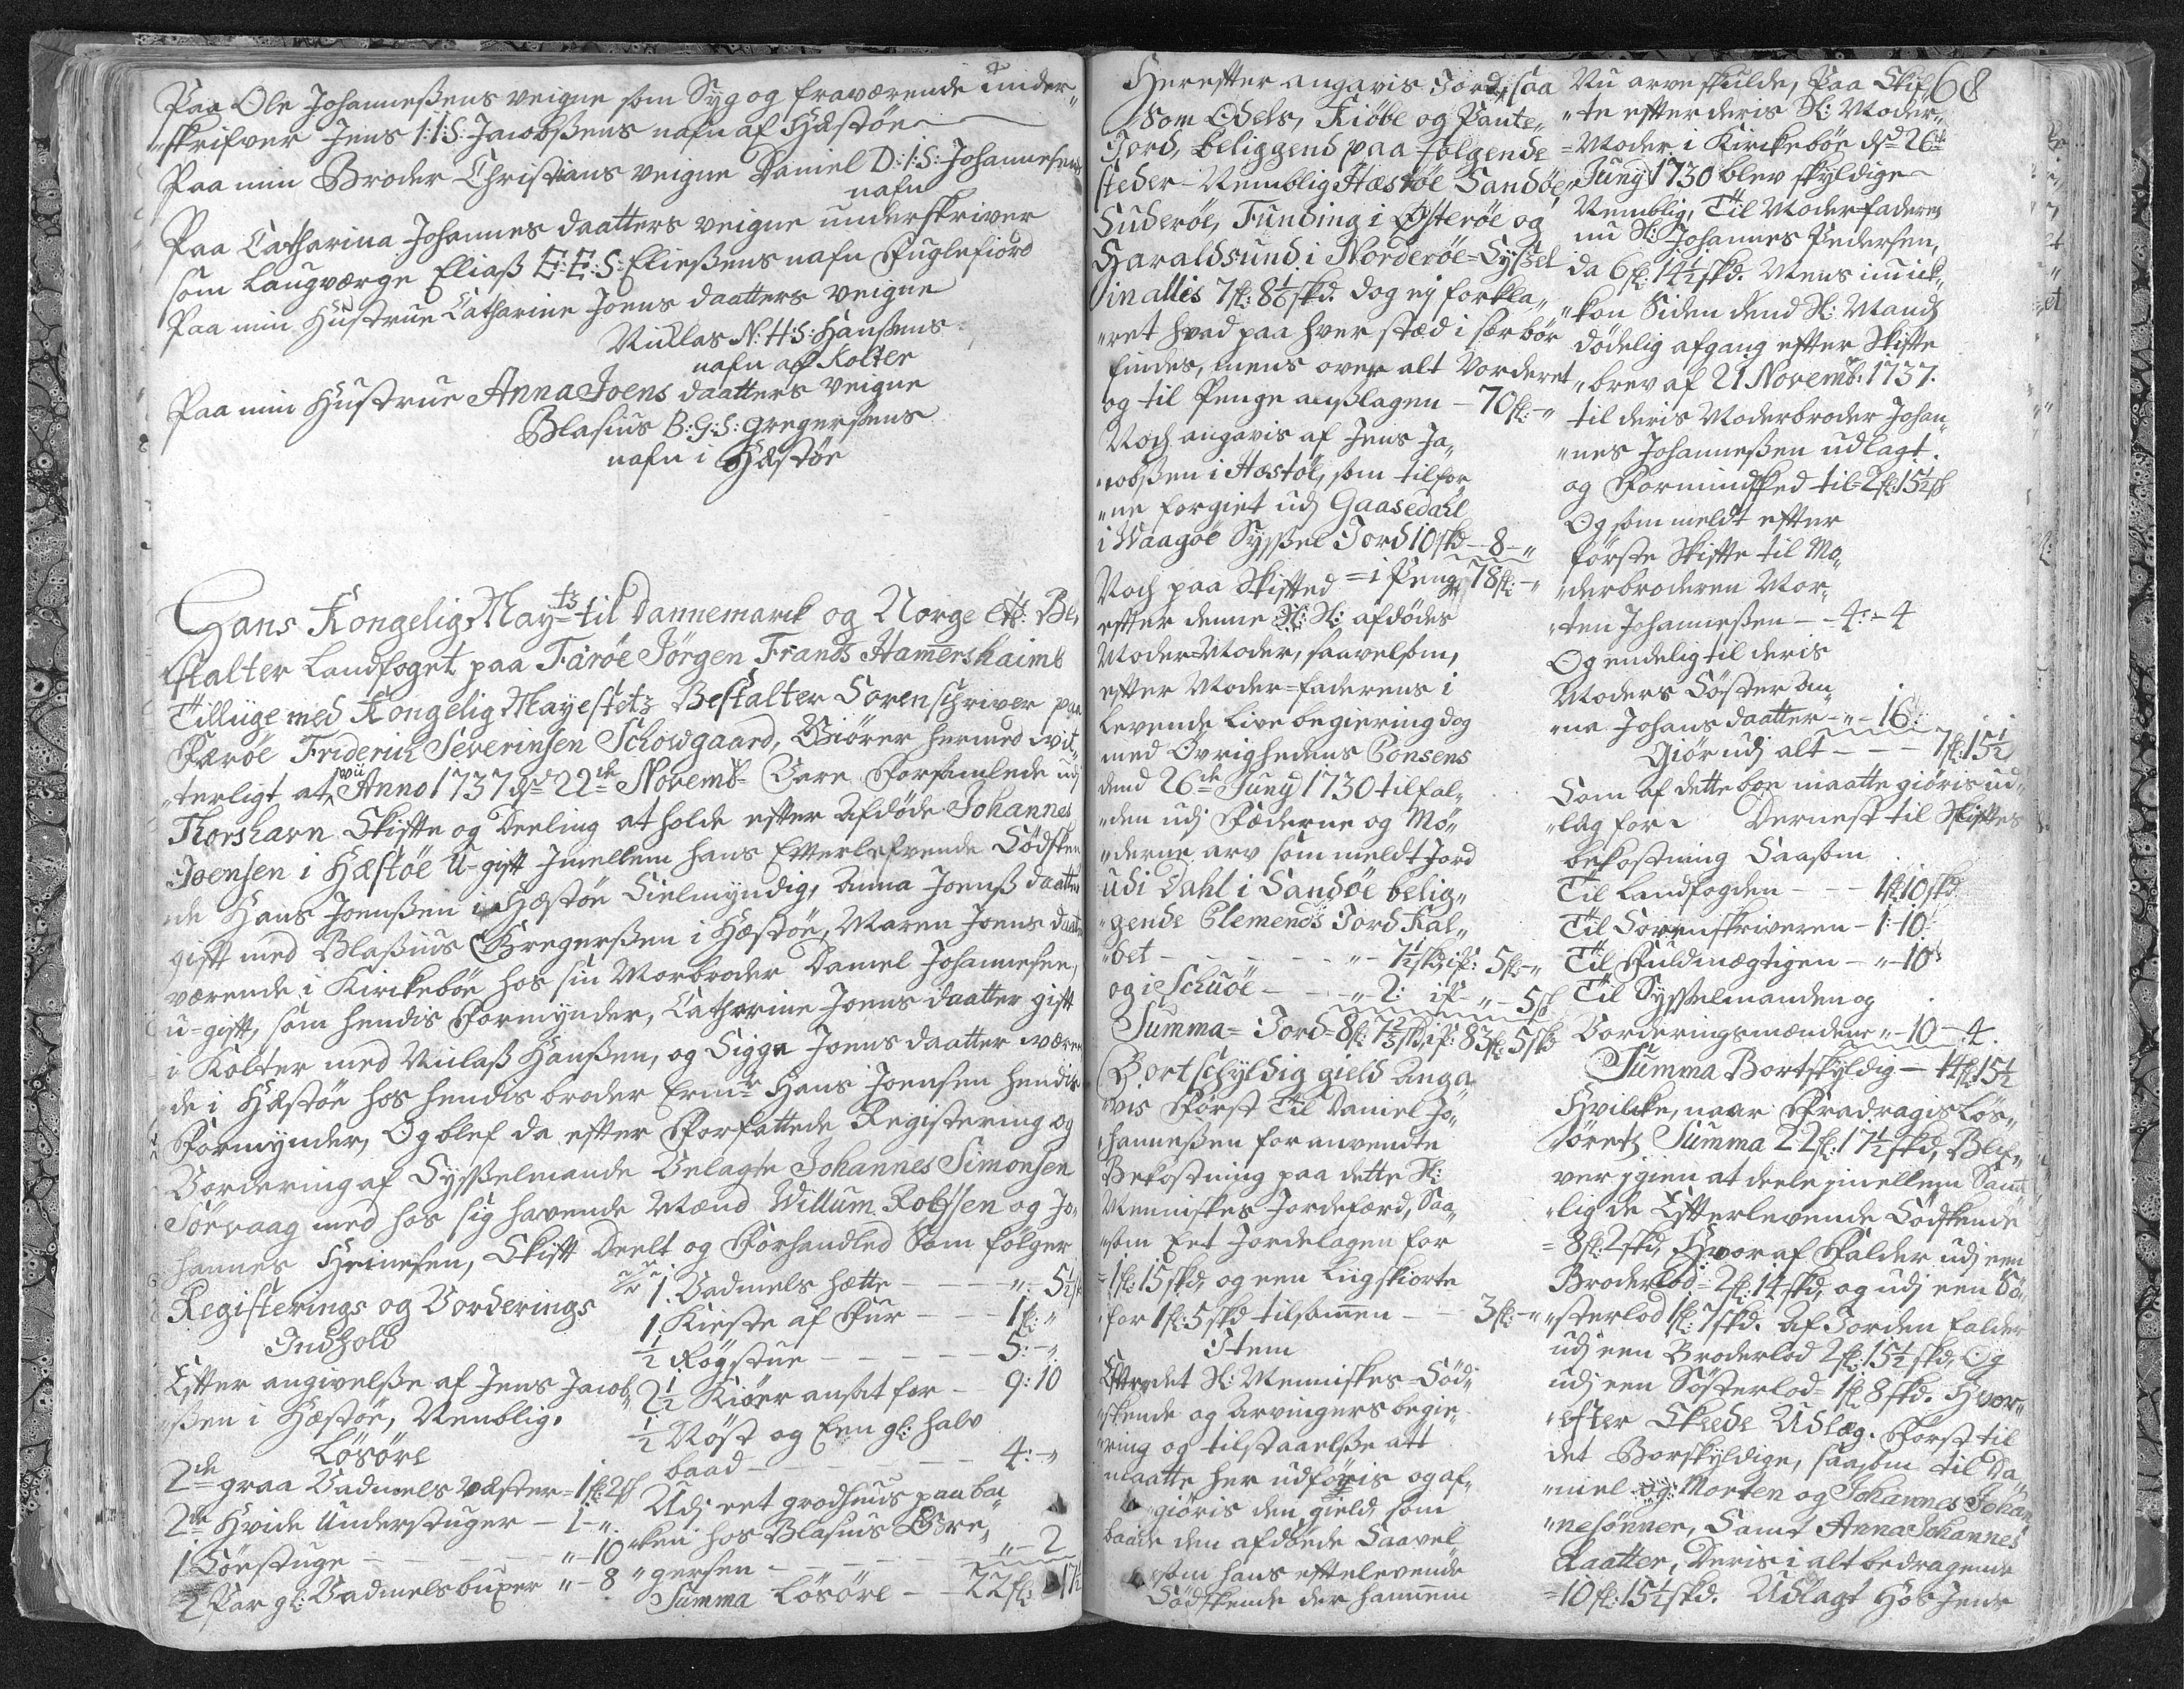 Paa Ole Johanneßens veigne som Syg og fraværende under„
„skrifver Jens I:I:S: Jacobßens nafn af Hæstøe
Paa min Broder Christians veigne Daniel D:I:S: Johannesens
nafn
Paa Catharina Johannes daatters veigne underskriver
som Laugværge Eliaß E:E:S: Eließens nafn Fuglefiord
Paa min Hustrue Catharine Joens daatters veigne
Niclas N:H:S: Hansens
nafn af Kolter
Paa min Hustrue Anna Joens daatters veigne
Blasius B:G:S: Gregersens
nafn i Hæstøe
Hans Kongelig Maytz til Dannemarck og Norge etc: Be„
stalter Landfoget paa Færøe Jörgen Frands Hamershaimb
Tilliige med Kongelig Mayestetz Bestalter Sorenschriver paa
Færøe Friderich Severinsen Schowgaard, Giörer hermed vit„
„terligt at vii Anno 1737 dend 22de Novembr Vare Forsamlede udj
Thorshavn Skifte og Deeling at holde efter Afdöde Johannes
Joensen i Hæstøe U-gift Imellem hans Efterlefvende Södsken
de Hans Joensen i Hæstøe Sielmyndig, Anna Joenß daatter
gift med Blaßius Gregerßen i Hæstøe, Maren Joens daatter
værende i Kirckebøe hos sin Morbroder Daniel Johannesen,
u-gift, som hendis Formynder, Catharine Joens daatter gift
i Kolter med Niclaß Hanßen, og Sigga Joens daatter være
de i Hæstøe hos hendis broder Ermte Hans Joensen hendis
Formynder, Og blef da efter Forfattede Registering og
Vordering af Sysselmande Velagte Johannes Simonsen
Sörvaag med hos sig havende Mænd Willum Robssen og Jo„
hannes Heinesen, Skift Deelt og Forhandled Som fölger
Registerings og Vorderings
Indhold
Efter angivelße af Jens Jacob„
„ßen i Hæstøe, Nemblig.
Lösöre
2de graa Vadmels væster = 1fl: 2sk
2de Hvide Understuger – 1 – „
1 Söestuge – – – „ – 10
2 Par gl: Vadmelsbuxer „ – 8
1. Vadmels hætte – – – „ – 5½
1 Kieste af Fur – – 1fl: „
½ Røgstue – – – – 5: – „
2½ Kiöer ansat for – 9: 10
½ Nöst og Een gl: halv
baad – – – – – 4: – „
Udj eet grodhuus paa ba„
ken hos Blasius Gre„
„gersen – – – – „ – 2
Summa Lösöre – – 22fl: 17½
68
Herefter angavis Jord, saa
som Odels, Kiöbe og Pante„
Jord, beliggend paa følgende
steder – Nemblig Hæstøe Sandøe
Suderøe, Funding i Østerøe og
Haraldsund i Norderøe-Syssel
in alles 7fl: 8⅙ skd. dog ej forkla„
„ret hvad paa hver stæd i sær bör
findes, mens over alt Vorderet
og til Penge anslagen – 70fl: – „
Noch angavis af Jens Ja„
„cobßen i Hæstøe, som tilfor„
„ne forgiet udj Gaasedahl
i Waagøe Syssel Jord 10 skd – 8 – „
Noch paa Skifted = i Penge 78fl: – „
efter denne Sl: afdödes
Moder-Moder, saavelsom,
efter Moder-faderens i
levende Live begiering dog
med Övrighedens Consens
dend 26de Juny 1730 tilfal„
„den udj Fæderne og Mö„
„derne arv som meldt Jord
udi Dahl i Sandøe belig„
„gende Clemends Jord Kal„
„det – – – – „ – 7½ skd, is: 5fl: – „
og i Schuöe – – „ 2: is – „ – 5sk
Summa = Jord = 8fl: 7⅔ skd, is: 83fl: 5sk
Bortschyldig gield Anga„
„vis Först Til Daniel Jo„
„hanneßen for anvendte
Bekostning paa dette Sl:
Menniskes Jordefærd, Saa„
„som Eet Jordelagen for
= 1fl: 15skd, og een Liigskiorte
for 1fl: 5 skd tilsamen – 3fl: – „
Item
Efter det Sl: Menniskes Söd„
„skende og Arvingers begie„
„ring og tilstaaelße att
maatte her udföris og af„
„giöris den gield, som
baade den afdöede Saavel
som hans efterlevende
Södskende der hannem
Nu arve skulde, Paa Skif„
„te efter deris Sl: Moder„
=Moder i Kirckebøe dend 26de
„Juny 1730 blev skyldige
Nemblig, Til Moderfaderen
nu Sl: Johannes Pedersen,
da 6fl: 14½ skd. Mens
„kon Siden dend Sl: Mands
dödelig afgang efter Skifte
„brev af 21 Novembr: 1737.
til deris Moderbroder Johan„
„nes Johanneßen udlagt.
og Formindsked til = 2fl: 15½ sk
Og som meldt efter
förste Skifte til Mo„
„derbroderen Mor„
„ten Johanneßen – – 4: – 4
Og endelig til deris
Moders Söster An„
„na Johans daatter – „ – 16.
Giör udj alt – – – 7fl: 15½
Som af dette boe maatte giöris ud„
„læg for. Dernest til Skiftes
bekostning Saasom
Til Landfogden – – – 1fl: 10 skd
Til Sorenskriveren – 1: 10
Til Fuldmægtigen – „ – 10
Til Sysselmanden og
Vorderingsmændene „ – 10 – 4.
Summa Bortskyldig – 14fl: 15½
Hvilcke, naar Fradragis Lös„
„öretz Summa 22fl: 17½ skd, Blif„
ver igien at deele imellem Samt
„lig de Efterlevende Södskende
= 8fl: 2 skd, Hvoraf Falder udj een
Broderlod = 2fl: 14 skd, og udj een Sö„
„sterlod 1fl: 7 skd. Af Jorden falder
udj een Broderlod 2fl: 15½ skd, Og
udj een Sösterlod = 1fl 8 skd. Hvor„
„efter Skeede Udlæg. Först til
det Borskyldige, saasom til Da„
„niel og: Morten og Johannes Johan
„nesønner, Samt Anna Johannes
daatter, Deris i alt bedragende
= 10fl: 15½ skd. Udlagt Hos Jens